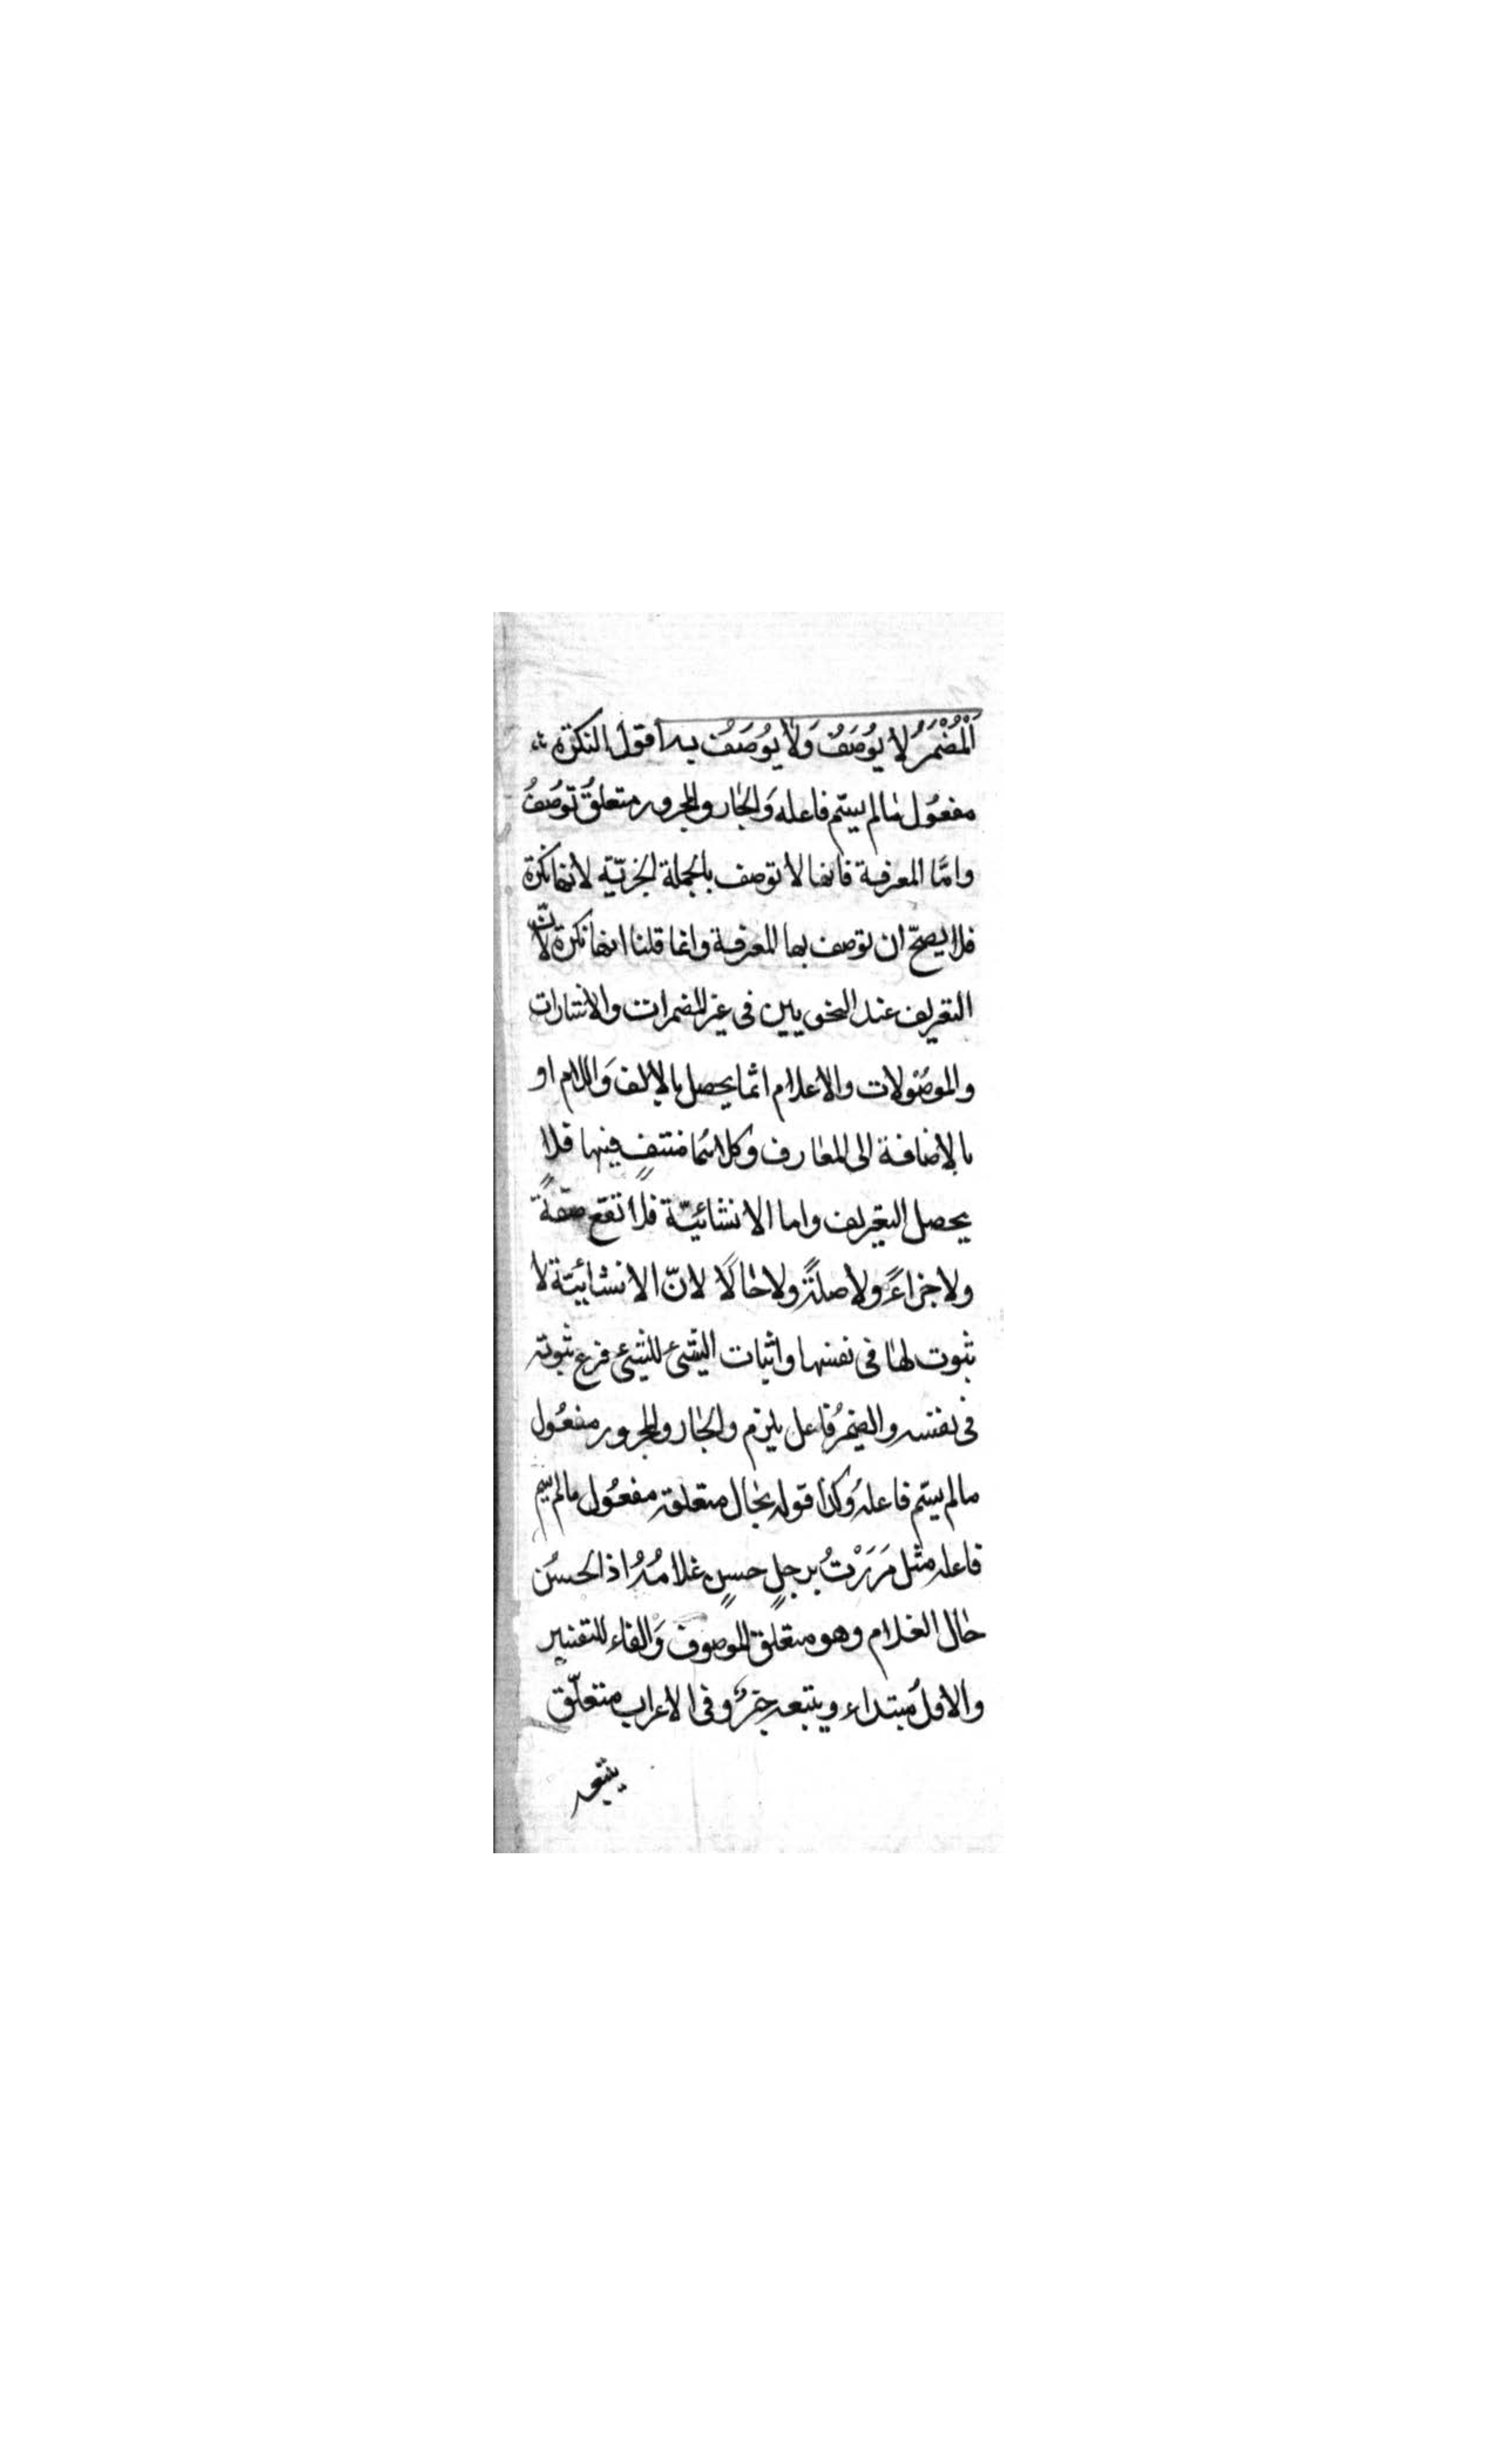 اَلْمُضْمَرُ لا يُوصَفُ وَلا يُوصَفُ به اقول النكرة
مفعُول مالم يسمّ فاعله وَالجار والمجرور متعلقُ تُوصَفُ
وامّا المعرفة فانها لا توصف بالجملة الخبريّة لانها نكرة
فلا يصحّ ان توصف بها المعرفة وانما قلنا انها نكرة لانّ
التعريف عند النحويين فى غير المضمرات والاشارات
والموصُولات والاعلام انّما يحصل بالالف وَاللام او
بالاضافة الى المعارف وكلاهُما منتفٍ فيها فلا
يحصل التعريف واما الانشائيّة فلا تقع صفةً
ولا جزاءً ولا صلةً ولا حالًا لانّ الانشائيّة لا
ثبوت لها فى نفسها واثبات الشئ للشئ فرع ثبوته
فى نفسه والضميرُ فاعل يلزم والجار والمجرور مفعُول
مالم يسمّ فاعلهُ وكذا قوله بحال متعلقه مفعُول مالم يسم
فاعله مثل مَرَرْتُ برجلٍ حسنٍ غلامُهُ اذ الحسُن
حال الغلام وهو متعلّق الموصوف وَالفاء للتفسير
والاولُ مبتداء ويتبعه خبرُه وفى الاعراب متعلّق
يتبعه